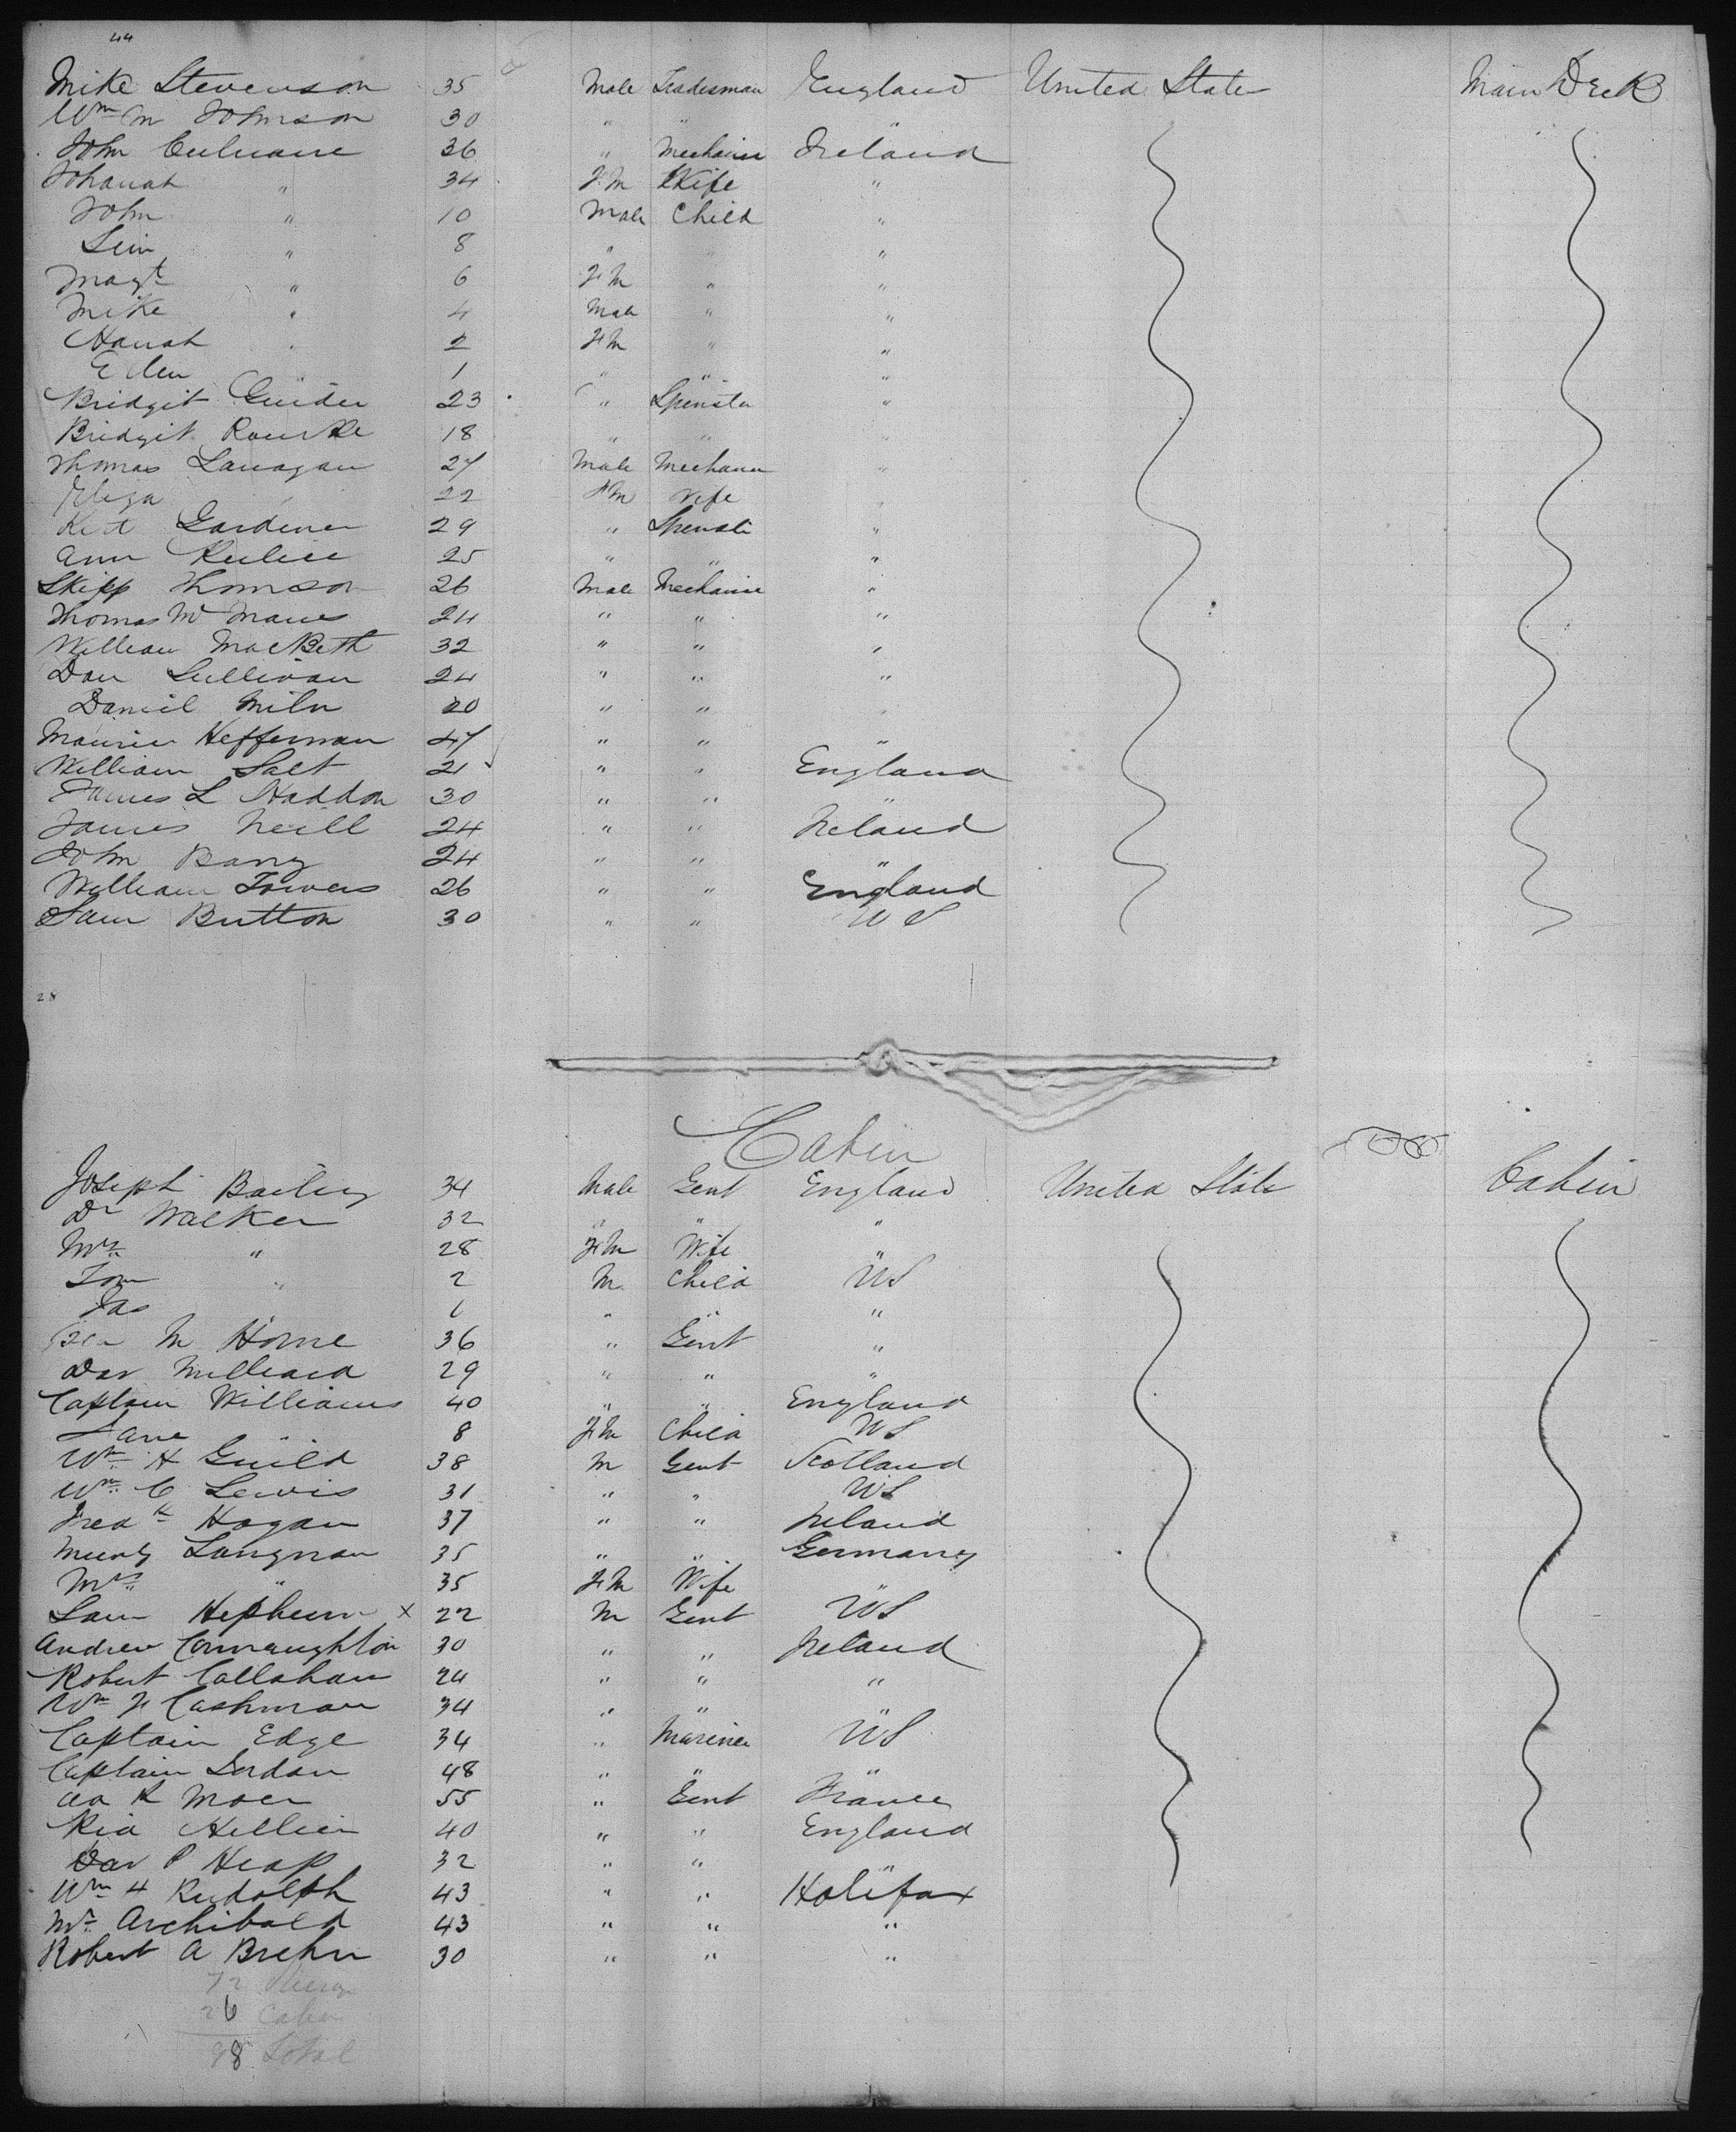 44
Mike Stevenson 35 Male Tradesman England United State Main Deck
Wm M Johnson 30 " " "
John Culnane 36 " Mechanic Ireland
Johanah " 34 FM Wife "
John " 10 Male Child "
" 8 " " "
Magt " 6 FM " "
Mike " 4 Male " "
Hanah " 2 FM " "
Ellen 1 " " "
Bridgit 23 " Spinster "
Bridgit Rourke 18 " " "
Thomas Lanagan 27 Male Mechanic "
Eliza " 22 FM Wife "
Kat Gardener 29 " Spinster "
Ann 25 " " "
Skipp Thomson 26 Male Mechanic "
Thomas 24 " " "
William MacBeth 32 " " "
Dan Sullivan 24 " " "
Daniel Miln 20 " " "
Maurice Heffernan 47 " " "
William Salt 21 " " England
James L Haddon 30 " " "
James Neill 24 " " Ireland
John Barry 24 " " "
William Towers 26 " " England
Sam Button 30 " " US
28
Cabin
Joseph Bailey 34 Male Gent England United State Cabin
Dr Walker 32 " " "
Mrs " 28 FM Wife "
Tom " 2 M Child US
Jas 1 " " "
M Horne 36 " Gent "
Dav Milliard 29 " " "
Captain Williams 40 " " England
Jane " 8 FM Child US
Wm H Guild 38 M Gent Scotland
Wm C Lewis 31 " " US
Fredk Hogan 37 " " Ireland
Langman 35 " " Germany
Mrs " 35 FM Wife "
Sam Hepburn x 22 M Gent US
Andrew Connaughton 30 " " Ireland
Robert Callahan 24 " " "
Wm F Cashman 34 " " "
Captain Edge 34 " Mariner US
Captain Jordan 48 " " "
R 55 " Gent France
Hellier 40 " " England
Dav P Heap 32 " " "
Wm H Rudolph 43 " " Halifax
Mr Archibald 43 " " "
Robert A Brehm 30 " " "
72
26 Cabin
98 Total